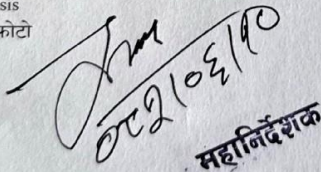 SIS
फोटो
०८२।०६।१०
महानिर्देशक